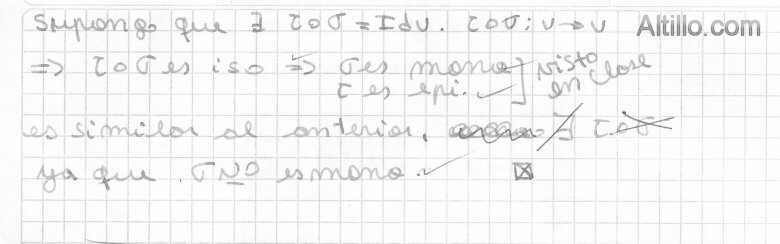 Supongo que ∃ τoσ = Idv. τoσ: v→v Altillo.com
=> τoσ es iso => σ es mono visto
τ es epi. en clase
es similar al anterior, ∄ τoσ
ya que σ NO es mono.